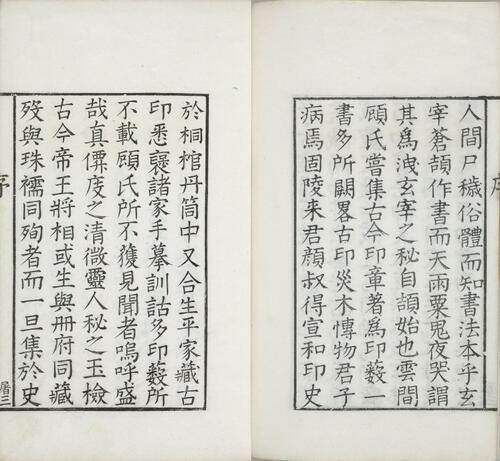 人間尸穢俗體而知書法本乎玄
宰蒼頡作書而天雨粟鬼夜哭謂
其為洩玄宰之秘自頡始也雲間
顧氏嘗集古今印章著為印藪一
書多所闕畧古印災木愽物君子
病焉固陵来君顏叔得宣和印史
於桐棺丹筒中又合生平家藏古
印悉褎諸家手摹訓詁多印藪所
不載顧氏所不獲見聞者嗚呼盛
哉真僳庋之清微靈人秘之玉檢
古今帝王將相或生與冊府同藏
歿與珠襦同殉者而一旦集於史
序
屠三